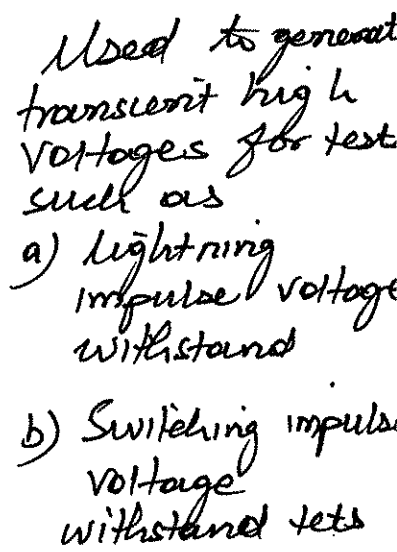 Used to generat
transient high
Voltages for test
such as
a) lightning
impulse voltage
withstand
b) Switching impuls
voltage
withstand tets